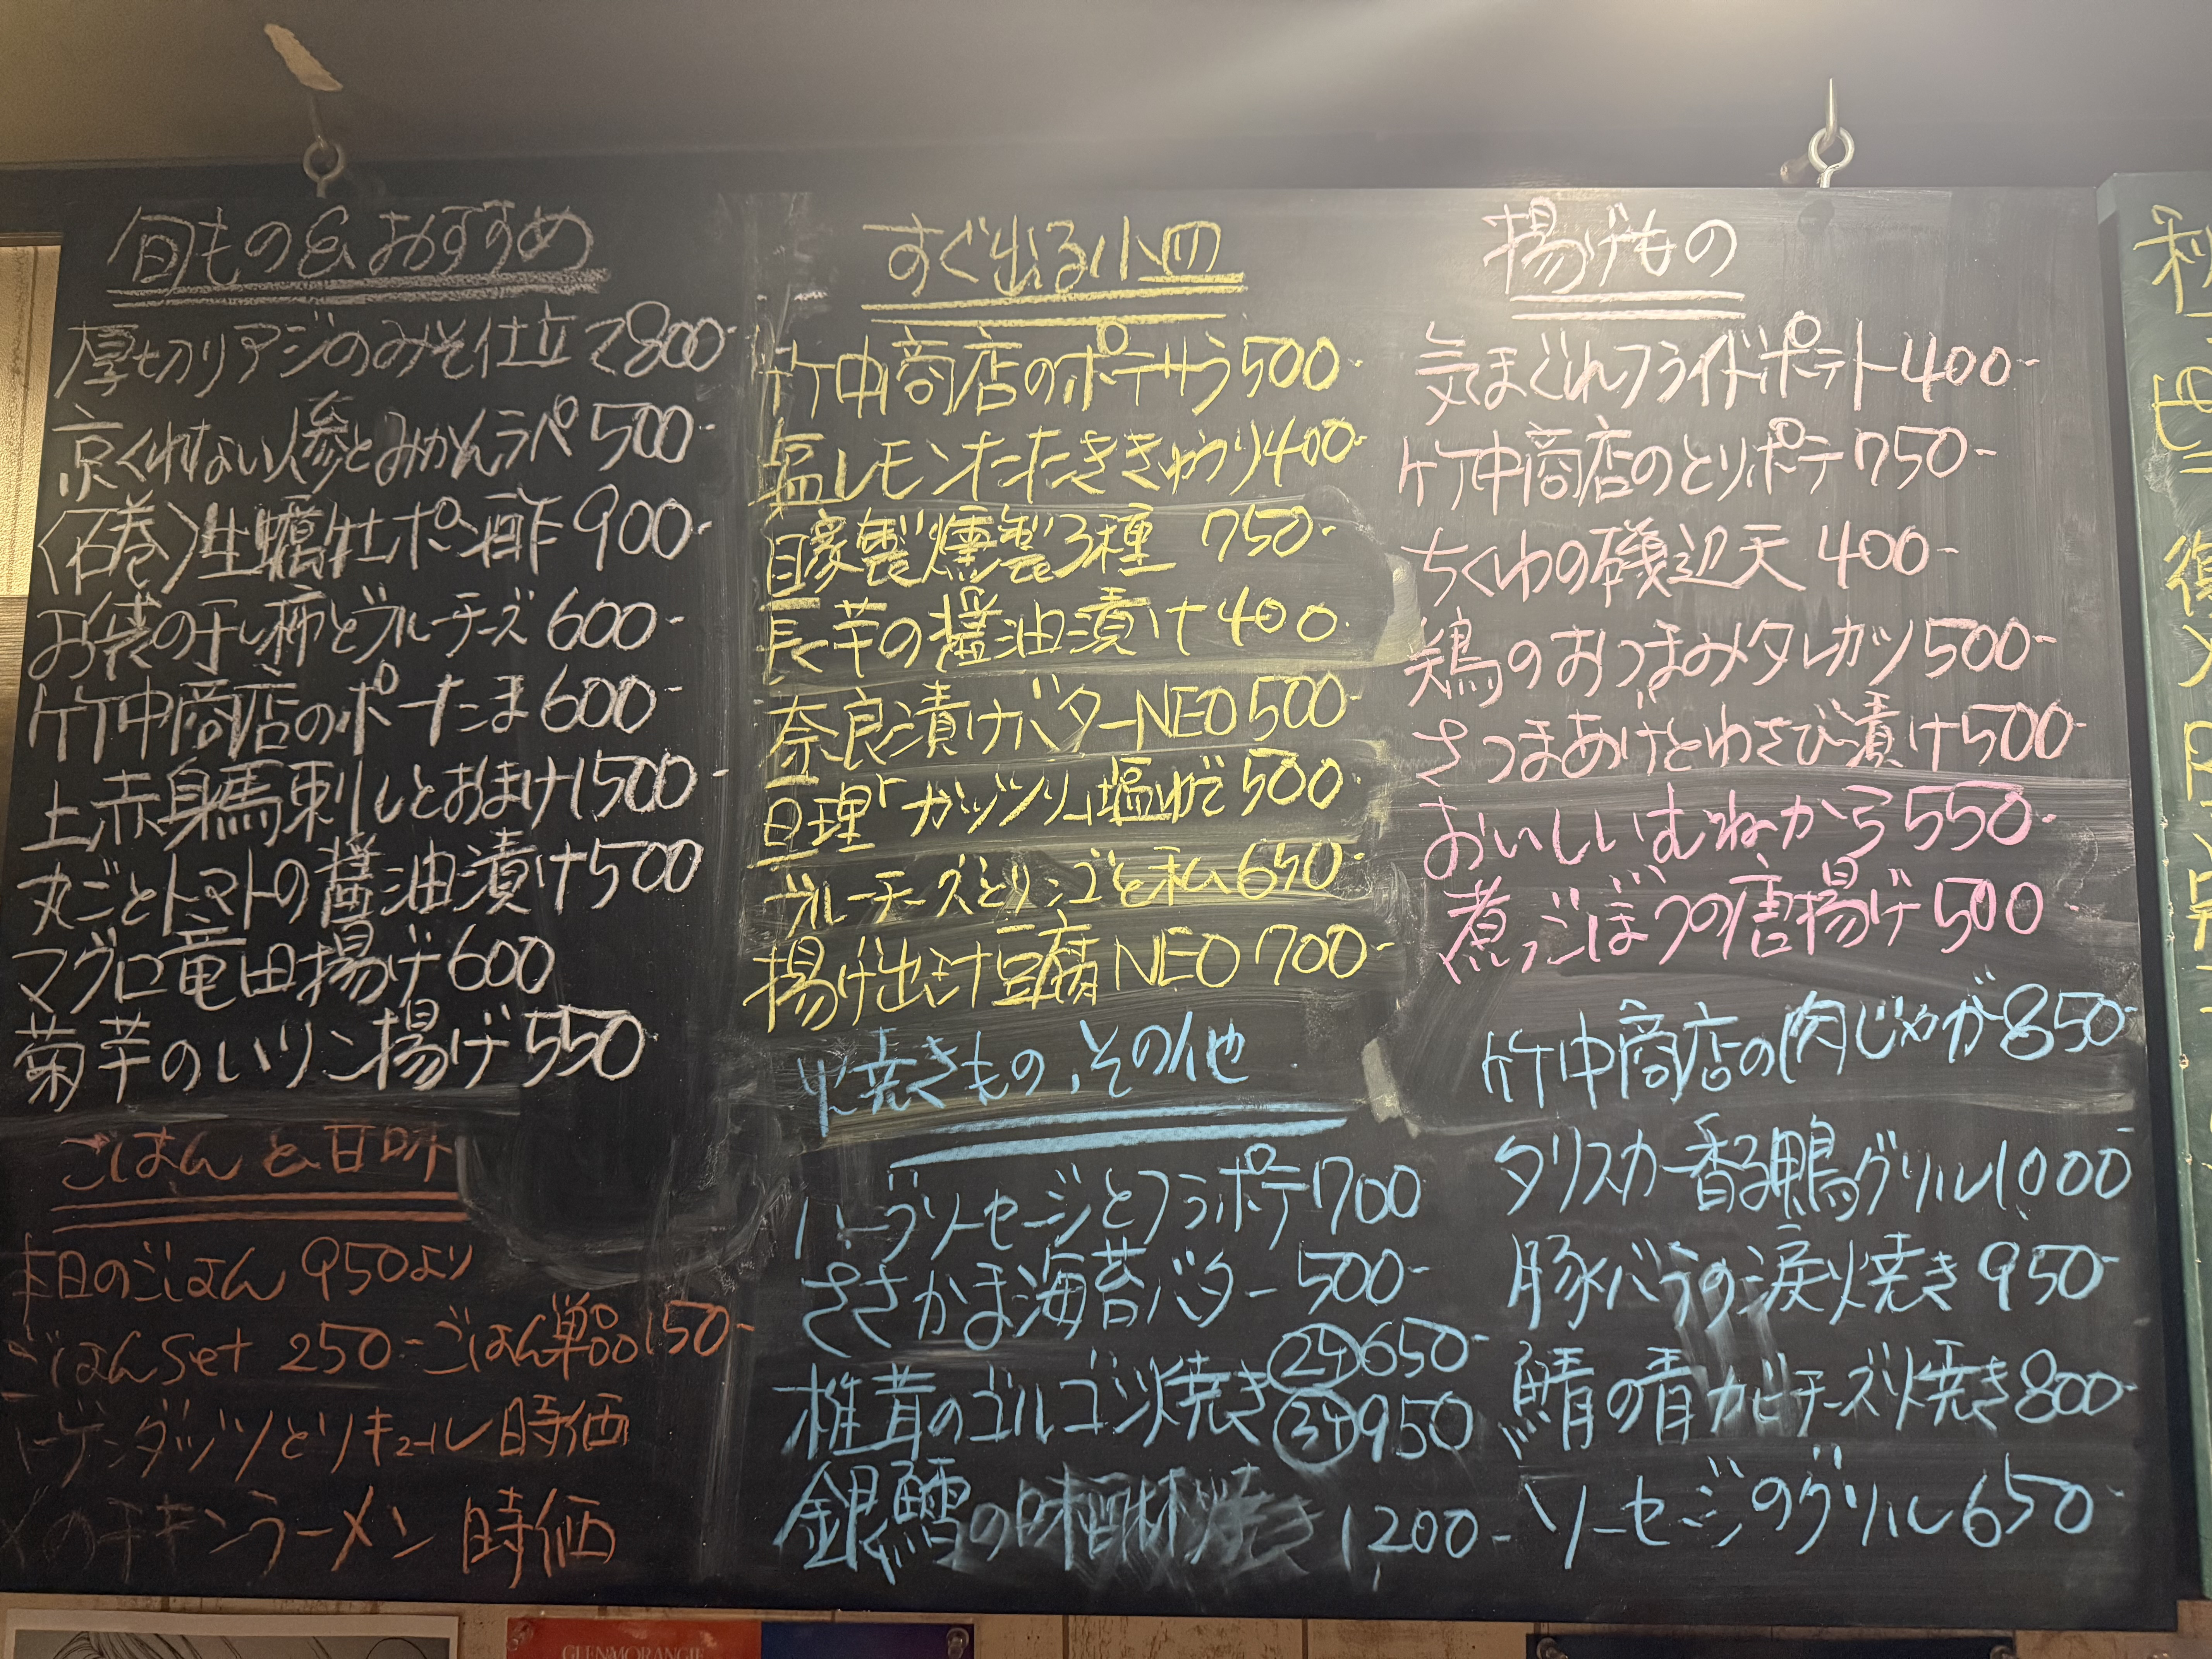 旬もの&おすすめ
厚切りアジのみそ仕立て800-
京くれない人参とみかんラペ500-
〈石巻〉生蠣牡ポン酢900-
お袋の干し柿とブルーチーズ600-
竹中商店のポーたま600-
上赤身馬刺しとおまけ1500-
丸ごとトマトの醤油漬け500
マグロ竜田揚げ600
菊芋のいリン揚げ550
ごはんと甘味
本日のごはん 950より
ごはんset 250-ごはん単品150-
ーゲンダッツとリキュール時価
〆のチキンラーメン 時価
すぐ出る小皿
竹中商店のポテサラ500-
塩レモンたたききゅうり400-
自家製燻製3種 750-
長芋の醤油漬け400.
奈良漬けバターNEO500-
亘理「ガッツリ」塩ゆで500
ブルーチーズとリンゴと私650-
揚げ出汁豆腐NEO700-
焼きもの、その他
ハーブソーセージとフラポテ700
ささかま海苔バター500-
椎茸のゴルゴンゾ焼き 2ケ650-
3ケ950
銀鱈の味醂焼き 1200-
揚げもの
気まぐれフライドポテト400-
竹中商店のとりポテ750-
ちくわの磯辺天400-
鶏のおつまみタレカツ500-
さつまあげとわさび漬け500-
おいしいむねから550-
煮ごぼうの唐揚げ500
竹中商店の肉じゃが850-
タリスカー香る鴨グリル1000
豚バラの涙焼き950-
鯖の青カビチーズ焼き800-
ソーセージのグリル650